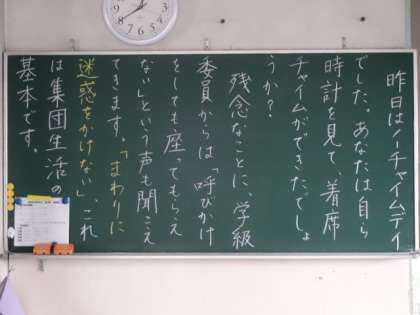 昨日はノーチャイムデイ
でした。あなたは自ら
時計を見て、着席
チャイムができたでしょ
うか？
残念なことに、学級
委員からは「呼びかけ
をしても座ってもらえ
ない」という声も聞こえ
てきます。「まわりに
迷惑をかけない」、これ
は集団生活の
基本です。